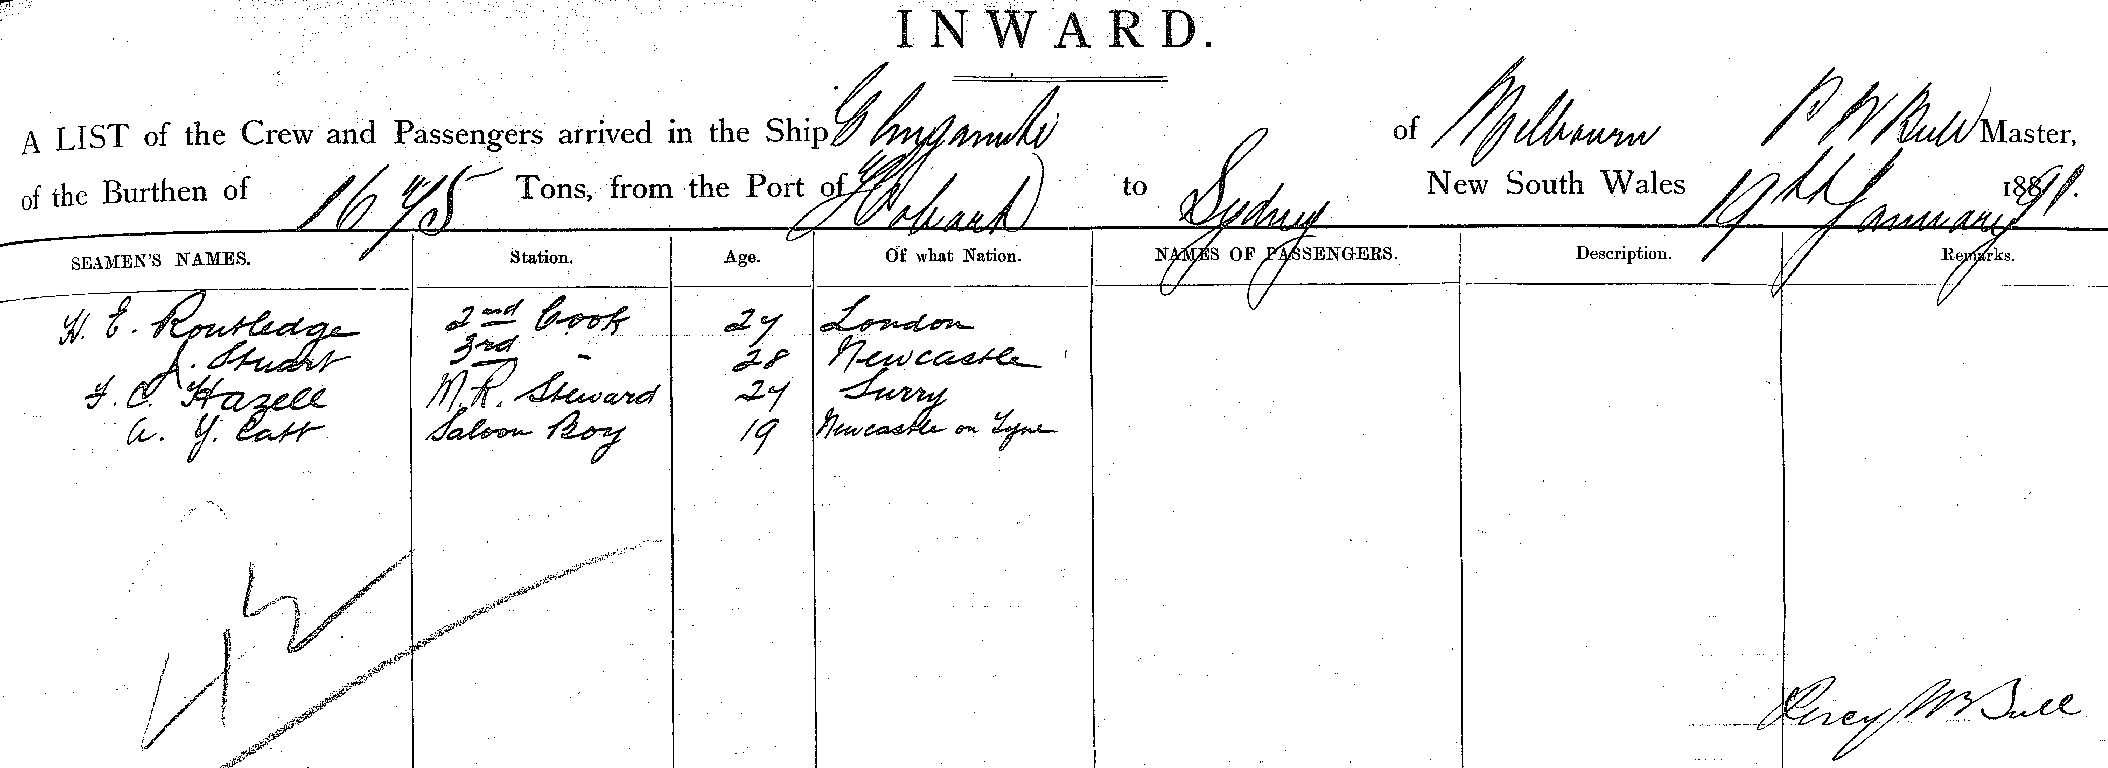 INWARD.
A LIST of the Crew and Passengers arrived in the Ship Elingamite of Melbourne P W Bull Master,
of the Burthen of 1675 Tons, from the Port of Hobart to Sydney New South Wales 19th January 1891.
SEAMEN'S NAMES. Station. Age. Of what Nation. NAMES OF PASSENGERS. Description. Remarks.
H. E. Routledge 2nd Cook 27 London
J. Stuart 3rd - 28 Newcastle
F. C. Hazell M.R. Steward 24 Surry
A. Y. Catt Saloon Boy 19 Newcastle on Tyne
42
Percy W Bull